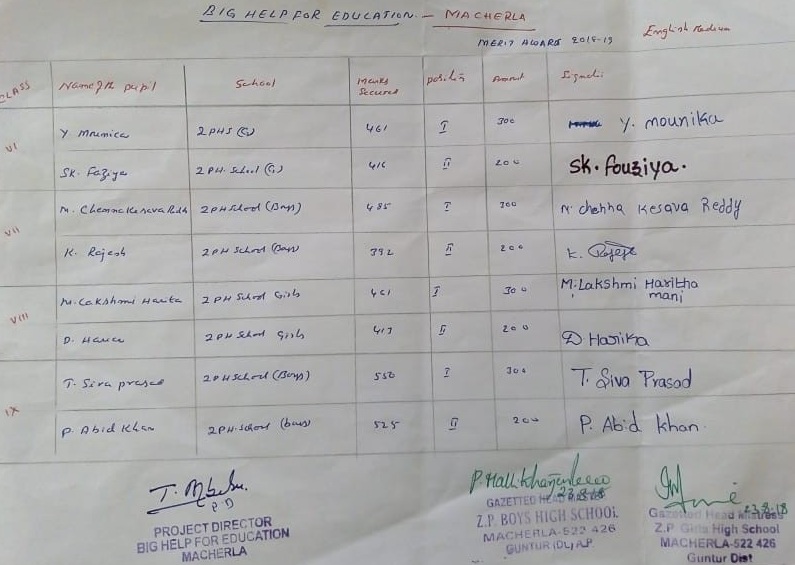 BIG HELP FOR EDUCATION - MACHERLA
MERIT AWARD 2018-19 English Medium
CLASS Name of the pupil School Marks Secured position Amount
VI Y Mounica ZPHS (G) 461 I 300 Y. mounika
SK. Faziya ZPH. School (G) 416 II 200 SK. fouziya.
VII M. Chenna Kesava Reddy ZPH School (Boys) 485 I 300 chenna Kesava Reddy
K. Rajesh ZPH School (Boys) 392 II 200 K.
VIII M. Lakshmi Harita ZPH School Girls 461 I 300 M. Lakshmi Haritha mani
D. ZPH School Girls 413 II 200 D Harika
IX T. Siva prasad ZPH School (Boys) 550 I 300 T. Siva Prasad
P. Abid Khan ZPH. School (boys) 525 II 200 P. Abid khan.
T.
P D
PROJECT DIRECTOR
BIG HELP FOR EDUCATION
MACHERLA
23-8-18
GAZETTED HEAD MASTER
Z.P. BOYS HIGH SCHOOL
MACHERLA-522 426
GUNTUR (Dt.) A.P.
23-8-18
Gazetted Head Mistress
Z.P Girls High School
MACHERLA-522 426
Guntur Dist